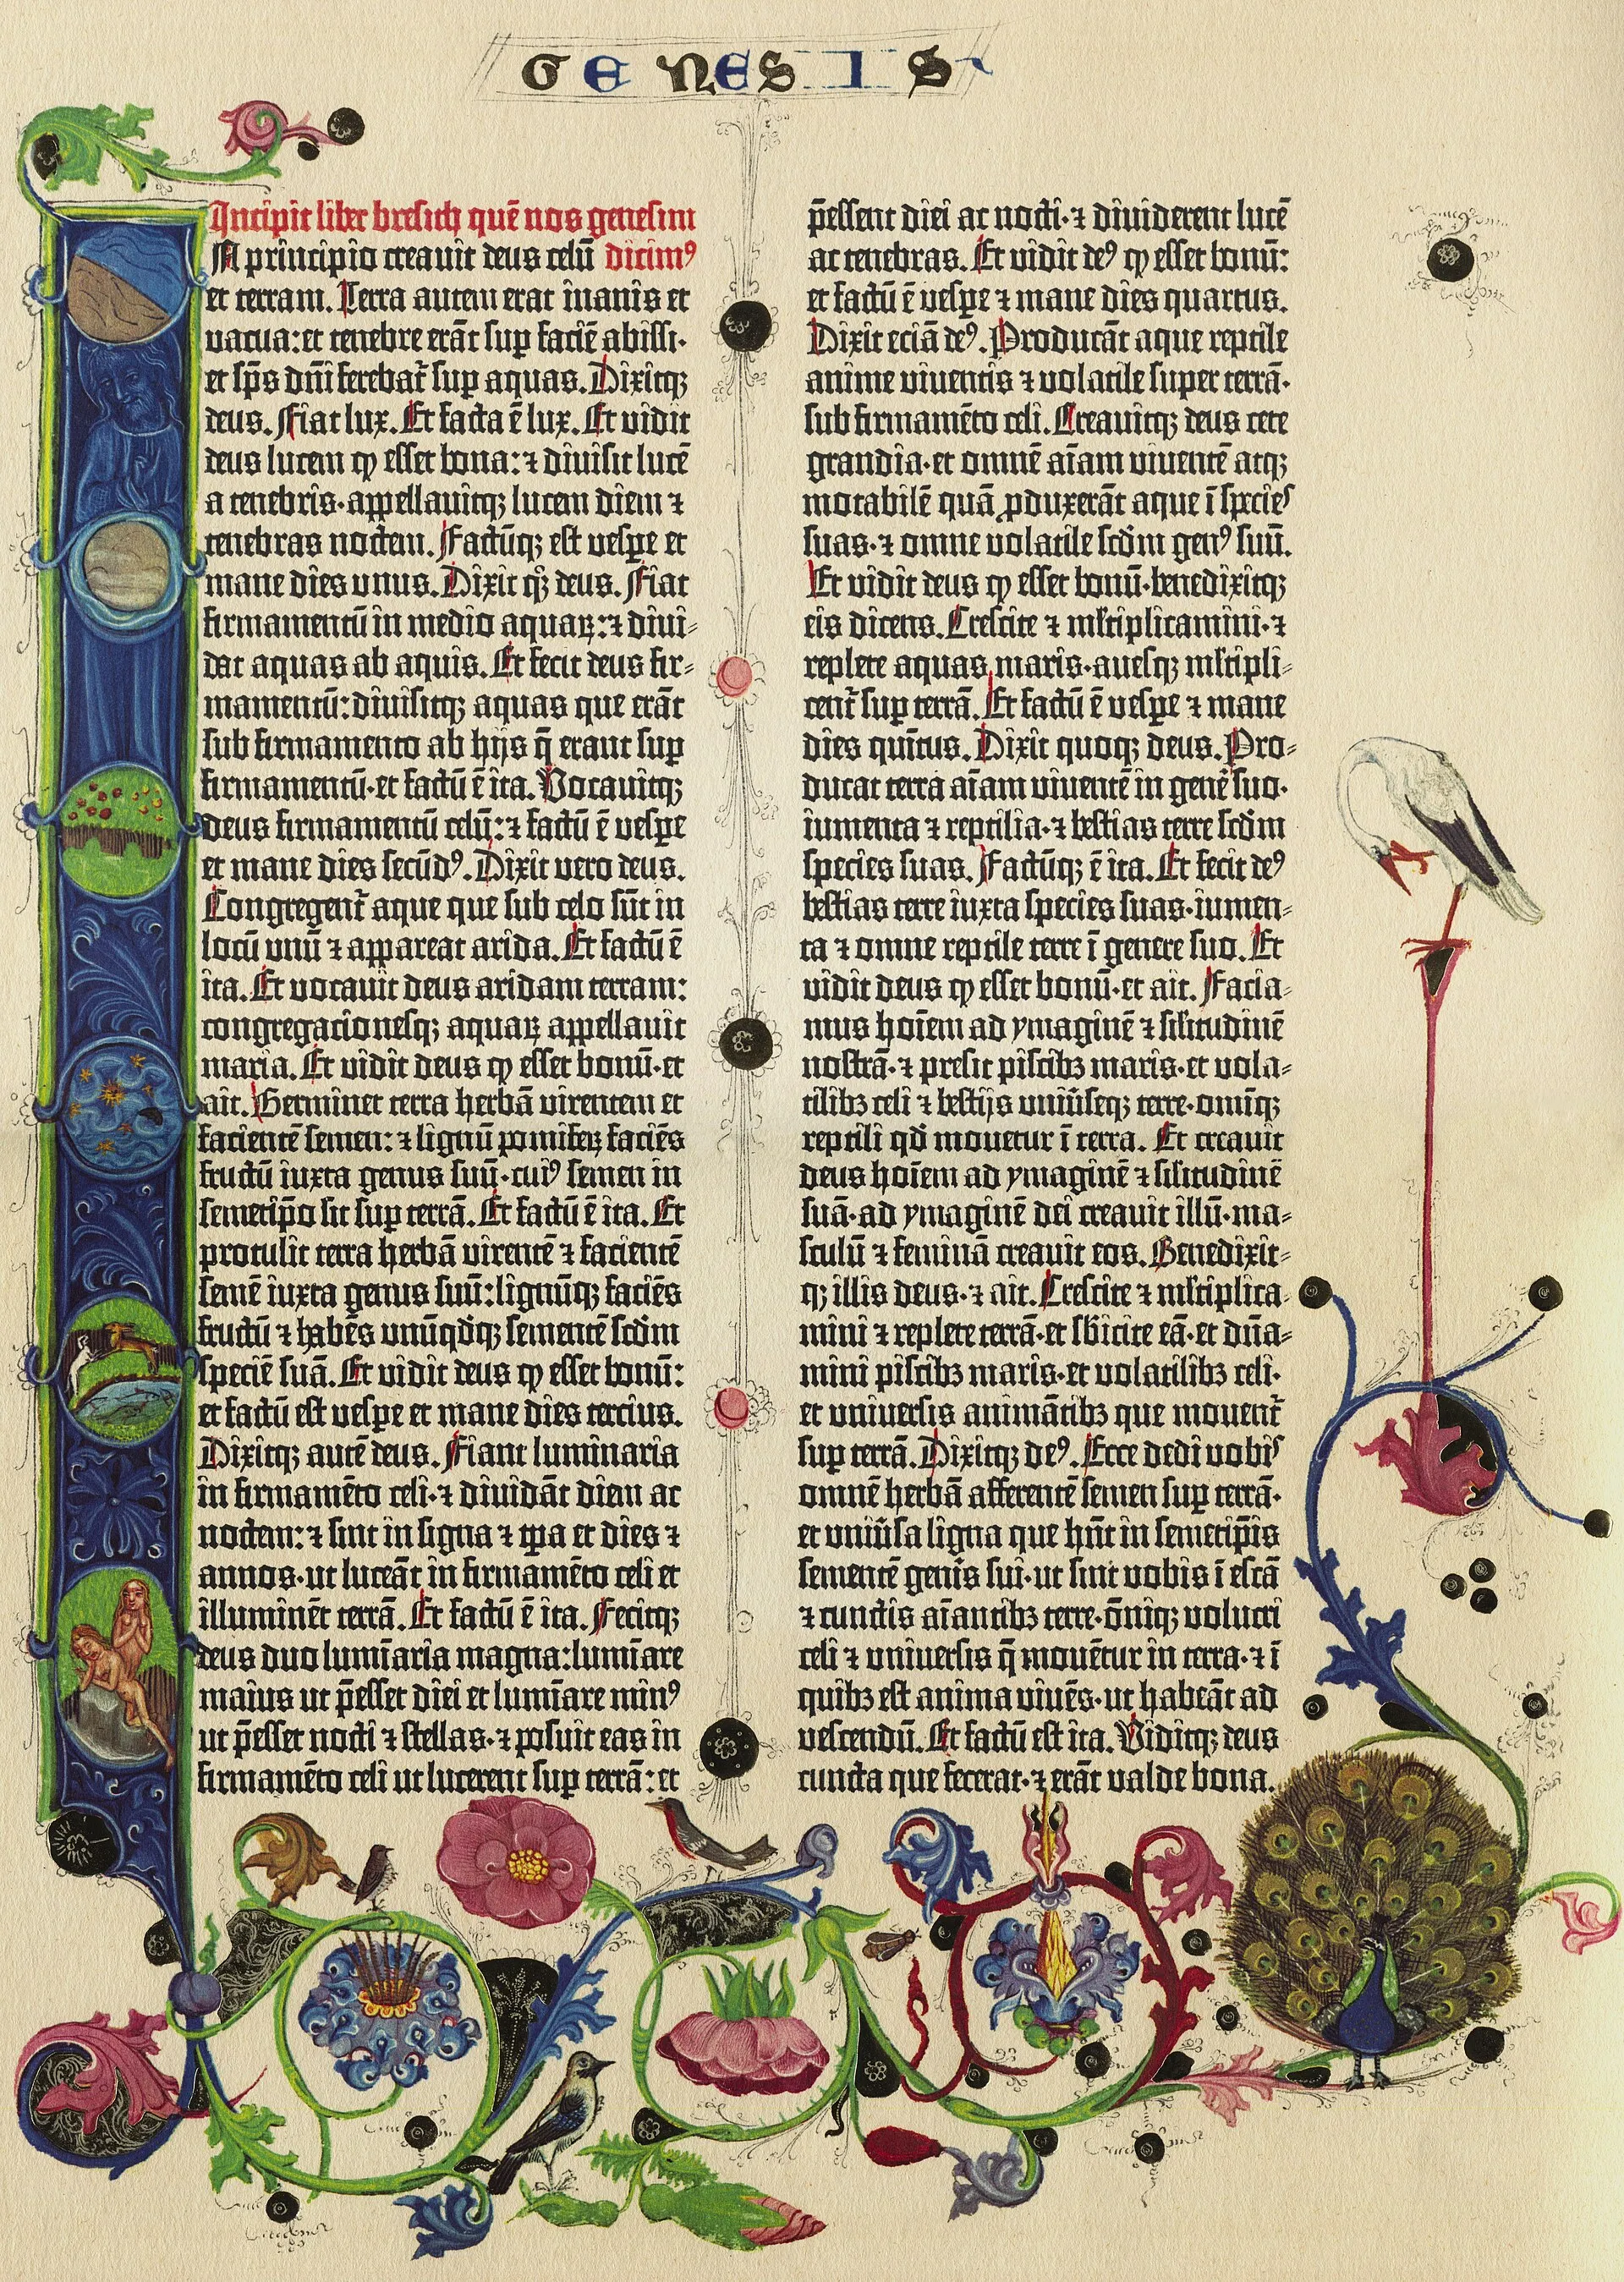 GENESIS
Incipit liber bresith quē nos genesim
In principio creauit deus celū dicimꝰ
et terram. Terra autem erat inanis et
vacua: et tenebre erāt suꝑ faciē abissi.
et sp̄s dn̄i ferebat᷑ suꝑ aquas. Dixitqꝫ
deus. Fiat lux. Et facta ē lux. Et vidit
deus lucem ꝙ esset bona: ⁊ diuisit lucē
a tenebris. appellauitqꝫ lucem diem ⁊
tenebras noctem. Factūqꝫ est vespe et
mane dies unus. Dixit qꝫ deus. Fiat
firmamentū in medio aquaꝝ: ⁊ diui-
dat aquas ab aquis. Et fecit deus fir-
mamentū: diuisitqꝫ aquas que erāt
sub firmamento ab hijs q̄ erant suꝑ
firmamentū. et factū ē ita. Vocauitqꝫ
deus firmamentū celū: ⁊ factū ē vespe
et mane dies secūdꝰ. Dixit vero deus.
Congregent᷑ aque que sub celo sūt in
locū unū ⁊ appareat arida. Et factū ē
ita. Et vocauit deus aridam terram:
congregacionesqꝫ aquaꝝ appellauit
maria. Et vidit deus ꝙ esset bonū. et
ait. Germinet terra herbā virentem et
facientē semen: ⁊ lignū pomiferꝝ faciēs
fructū iuxta genus suū. cuiꝰ semen in
semetip̄o sit suꝑ terrā. Et factū ē ita. Et
protulit terra herbā virentē ⁊ facientē
semē iuxta genus suū: lignūqꝫ faciēs
fructū ⁊ habēs unūqdqꝫ sementē scdm
speciē suā. Et vidit deus ꝙ esset bonū:
et factū est vespe et mane dies tercius.
Dixitqꝫ autē deus. Fiant luminaria
in firmamēto celi. ⁊ diuidāt diem ac
noctem: ⁊ sint in signa ⁊ tꝑa et dies ⁊
annos. ut luceāt in firmamēto celi et
illuminēt terrā. Et factū ē ita. Fecitqꝫ
deus duo lumīaria magna: lumīare
maius ut p̄esset diei et lumīare minꝰ
ut p̄esset nocti ⁊ stellas. ⁊ posuit eas in
firmamēto celi ut lucerent suꝑ terrā: et
p̄essent diei ac nocti. ⁊ diuiderent lucē
ac tenebras. Et vidit deꝰ ꝙ esset bonū:
et factū ē vespe ⁊ mane dies quartus.
Dixit eciā deꝰ. Producāt aque reptile
anime viuentis ⁊ volatile super terrā.
sub firmamēto celi. Creauitqꝫ deus cete
grandia. et omnē aīam viuentē atqꝫ
motabilē quā ꝓduxerāt aque ī species
suas. ⁊ omne volatile scdm genꝰ suū.
Et vidit deus ꝙ esset bonū. benedixitqꝫ
eis dicens. Crescite ⁊ mltiplicamini. ⁊
replete aquas maris. auesqꝫ mltipli-
cent᷑ suꝑ terrā. Et factū ē vespe ⁊ mane
dies quītus. Dixit quoqꝫ deus. Pro-
ducat terra aīam viuentē in genē suo.
iumenta ⁊ reptilia. ⁊ bestias terre scdm
species suas. Factūqꝫ ē ita. Et fecit deꝰ
bestias terre iuxta species suas. iumen-
ta ⁊ omne reptile terre ī genere suo. Et
vidit deus ꝙ esset bonū. et ait. Facia-
mus hoīem ad ymaginē ⁊ silitudinē
nostrā. ⁊ presit piscibꝫ maris. et vola-
tilibꝫ celi ⁊ bestijs uniūseqꝫ terre. omīqꝫ
reptili qd mouetur ī terra. Et creauit
deus hoīem ad ymaginē ⁊ silitudinē
suā. ad ymaginē dei creauit illū. ma-
sculū ⁊ feminā creauit eos. Benedixit-
qꝫ illis deus. ⁊ ait. Crescite ⁊ mltiplica-
mini ⁊ replete terrā. et sbicite eā. et dn̄a-
mini piscibꝫ maris. et volatilibꝫ celi.
et uniuersis animātibꝫ que mouent᷑
suꝑ terrā. Dixitqꝫ deꝰ. Ecce dedi vobis
omnē herbā afferentē semen suꝑ terrā.
et uniūsa ligna que hn̄t in semetip̄is
sementē genīs sui. ut sint vobis ī escā
⁊ cunctis aīantibꝫ terre. om̄iqꝫ volucri
celi ⁊ uniuersis q̄ mouētur in terra. ⁊ ī
quibꝫ est anima viuēs. ut habeāt ad
vescendū. Et factū est ita. Viditqꝫ deus
cuncta que fecerat. ⁊ erāt valde bona.